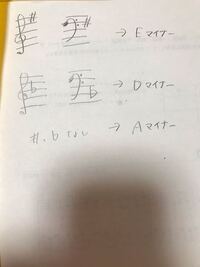 → Eマイナー
→ Dマイナー
#、bなし → Aマイナー